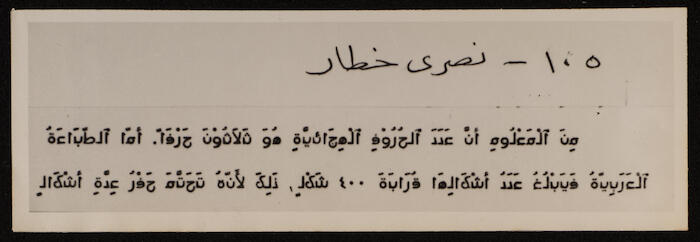 ١٠٥ - نصرى خطار
مِنَ ٱلْمَعْلُومِ أَنَّ عَدَدَ ٱلْحُرُوْفِ ٱلْهِجَائيَّةِ هُوَ ثَلاَثُوْنَ حَرْفَاً. أمَّا ٱلطِّبَاعَةُ
ٱلْعَرَبِيَّةُ فَيَبْلُغُ عَدَدُ أشْكَالِهَا قُرَابَةَ ٤٠٠ شَكْلٍ, ذَلِكَ لأَنَّهُ تَحَتَّمَ حَفْرُ عِدَّةِ أشْكَالٍ